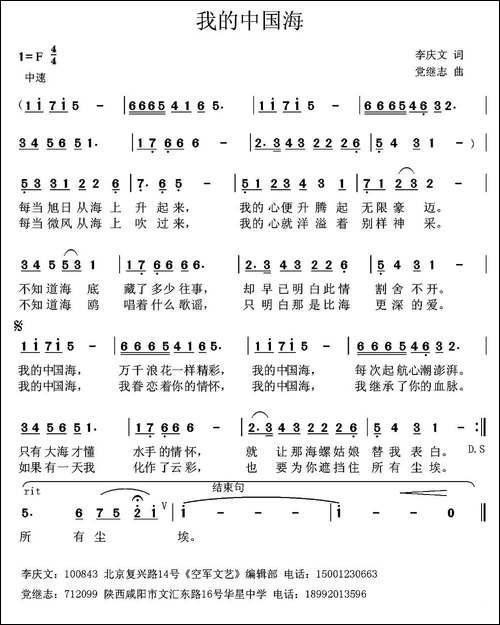 我的中国海
1=F 4/4
李庆文 词
中速
党继志 曲
(1 i 7 i 5 - | 6 6 6 5 4 1 6 5. | 1 i 7 i 5 - | 6 6 6 5 4 6 3 2.
3 4 5 6 5 1. | 1 7 6 6 6 - | 2. 3 4 3 2 2 2 | 5 4 3 1 - )
5 3 3 1 2 2 6 | 7. 6 5 6 - | 2. 3 4 3 1 2 2 | 7 1 2 3 2 -
每当旭日从海上 升起来, 我的心便升腾起 无限豪迈。
每当微风从海上 吹过来, 我的心就洋溢着 别样神采。
3 4 5 5 3 1 | 1 7 6 6 6. | 2 3 4 3 2 2 2 | 5 4 3 1 -
不知道海 底 藏了多少往事, 却早已明白此情 割舍不开。
不知道海 鸥 唱着什么歌谣, 只明白那是比海 更深的爱。
1 i 7 i 5 - | 6 6 6 5 4 1 6 5. | 1 i 7 i 5 - | 6 6 6 5 4 6 3 2.
我的中国海, 万千浪花一样精彩, 我的中国海, 每次起航心潮澎湃。
我的中国海, 我眷恋着你的情怀, 我的中国海, 我继承了你的血脉。
3 4 5 6 5 1. | 1 7 6 6 6 - | 2. 3 4 3 2 2 2 | 5 4 3 1 - :|
只有大海才懂 水手的情怀, 就 让那海螺姑娘 替我表白。 D.S
如果有一天我 化作了云彩, 也 要为你遮挡住 所有尘埃。
rit 结束句
5. 6 7 5 2 i | i - - - | i - - - | i 0 0 0
所 有尘 埃。
李庆文:100843 北京复兴路14号《空军文艺》编辑部 电话:15001230663
党继志:712099 陕西咸阳市文汇东路16号华星中学 电话:18992013596